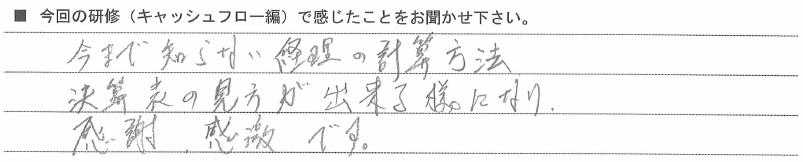 ■ 今回の研修（キャッシュフロー編）で感じたことをお聞かせ下さい。
今まで知らない経理の計算方法
決算表の見方が出来る様になり、
感謝、感激です。